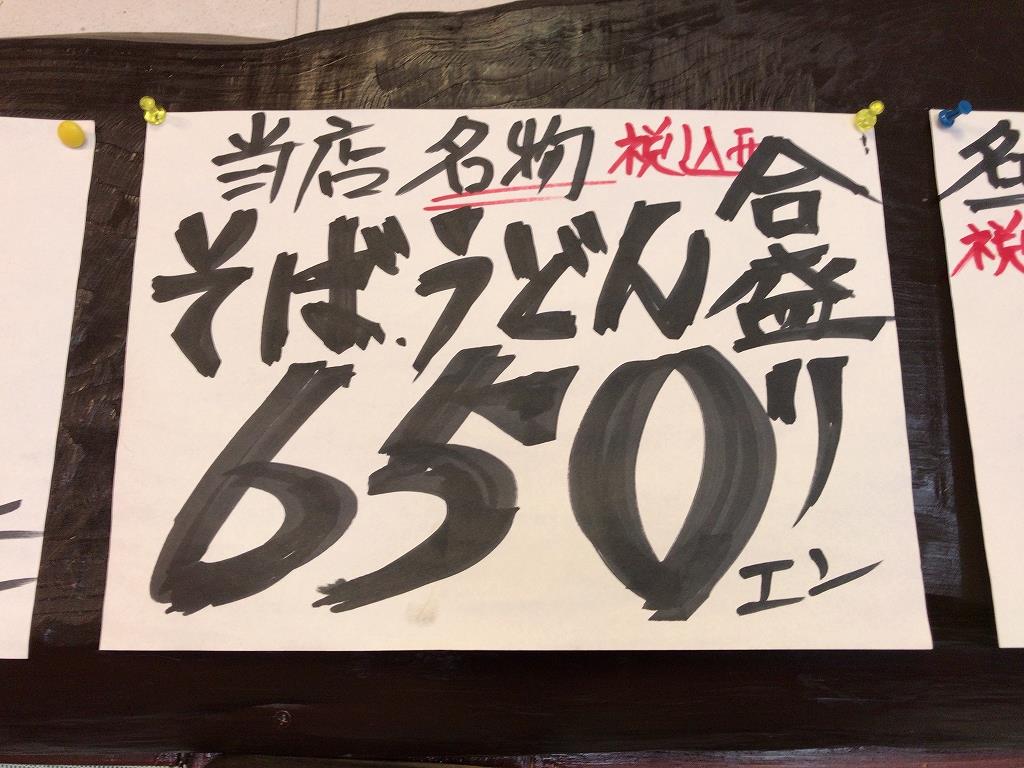 当店名物 税込
そば、うどん合盛り
650エン
名
税